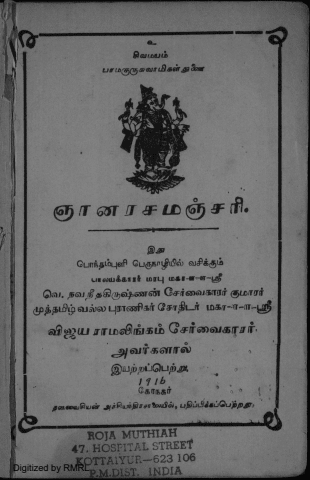 உ
சிவமயம்
பரமகுருசுவாமிகள் துணை
ஞானரசமஞ்சரி.
இது
பெருநாழியில் வசிக்கும்
பாளயக்காரர் மரபு மகா-ள-ள-ஸ்ரீ
வெ. நவநீதகிருஷ்ணன் சேர்வைகாரர் குமாரர்
முத்தமிழ் வல்ல புராணிகர் சோதிடர் மகா-ள-ள-ஸ்ரீ
விஜய ராமலிங்கம் சேர்வைகாரரர்
அவர்களால்
இயற்றப்பெற்று
1916
அச்சியந்திரசாலையில், பதிப்பிக்கப்பெற்றது;
ROJA MUTHIAH
47. HOSPITAL STREET
KOTTAIYUR-623 106
P.M.DIST. INDIA
Digitized by RMRL